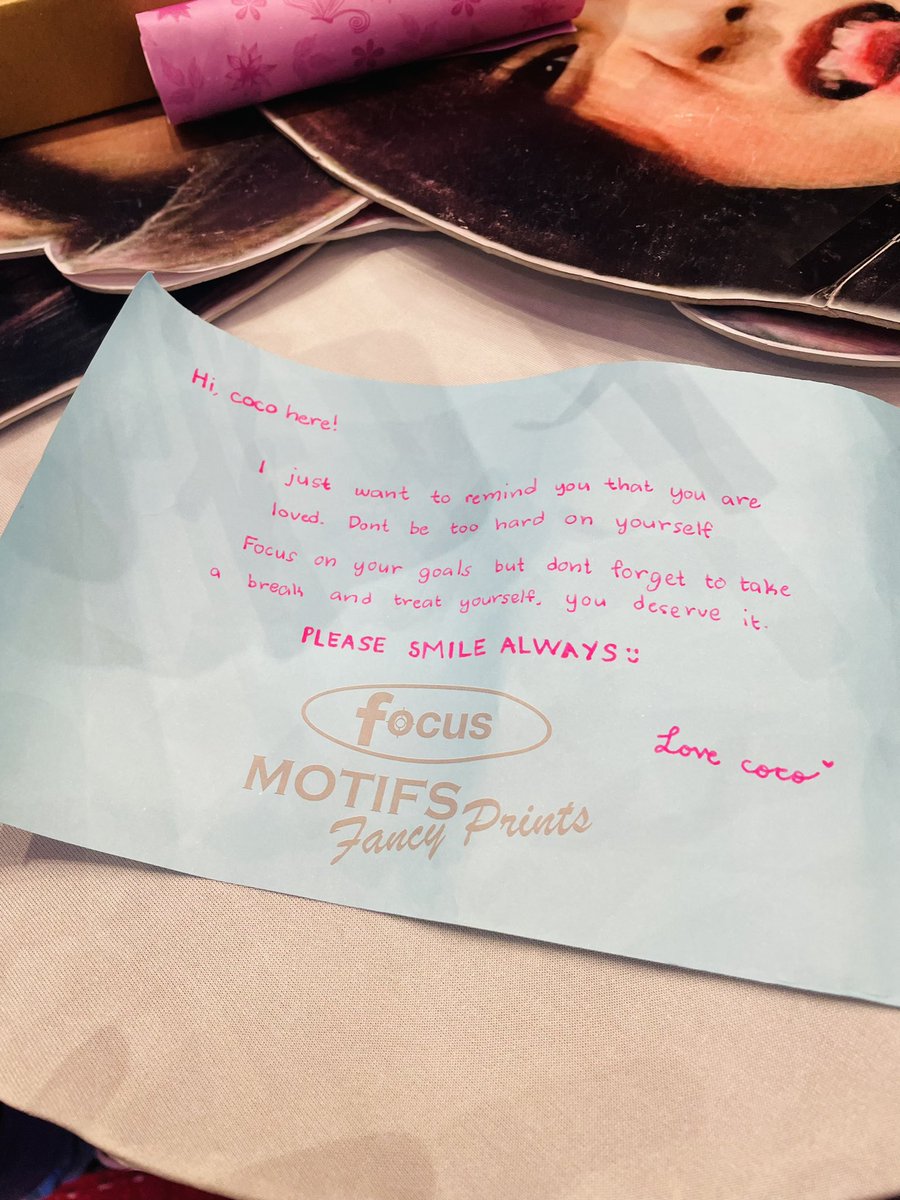 Hi, coco here!
I just want to remind you that you are
loved. Dont be too hard on yourself
Focus on your goals but dont forget to take
a break and treat yourself. you deserve it.
PLEASE SMILE ALWAYS :)
focus
MOTIFS
Fancy Prints
Love coco